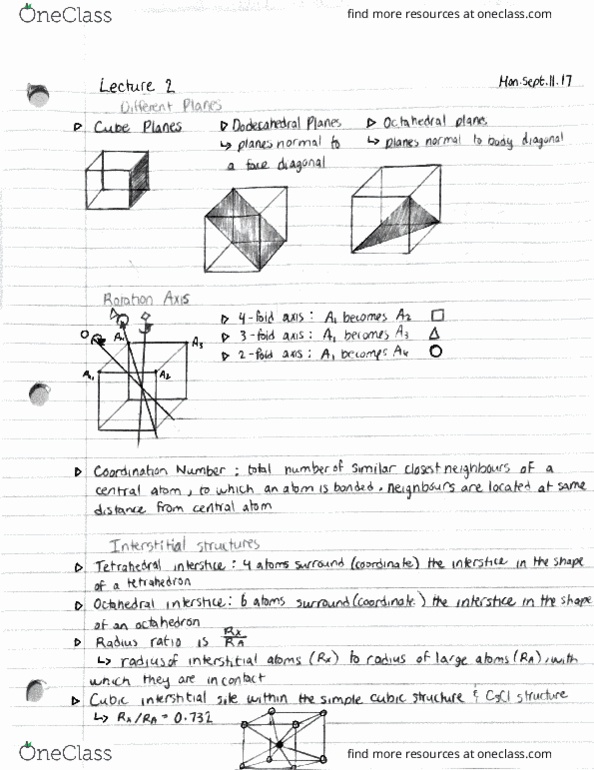 OneClass
find more resources at oneclass.com
Lecture 2
Mon.Sept.11.17
Different Planes
▷ Cube Planes
▷ Dodecahedral Planes
↳ planes normal to
a face diagonal
▷ Octahedral planes
↳ planes normal to body diagonal
Rotation Axis
▷ 4-fold axis : A1 becomes A2 □
▷ 3-fold axis : A1 becomes A3 △
▷ 2-fold axis : A1 becomes A4 ○
A4
A3
A1
A2
▷ Coordination Number : total number of similar closest neighbours of a
central atom, to which an atom is bonded. neighbours are located at same
distance from central atom
Interstitial structures
▷ Tetrahedral interstice : 4 atoms surround (coordinate) the interstice in the shape
of a tetrahedron
▷ Octahedral interstice : 6 atoms surround (coordinate) the interstice in the shape
of an octahedron
▷ Radius ratio is Rx/RA
↳ radius of interstitial atoms (Rx) to radius of large atoms (RA), with
which they are in contact
▷ Cubic interstitial site within the simple cubic structure & CsCl structure
↳ Rx/RA = 0.732
OneClass
find more resources at oneclass.com